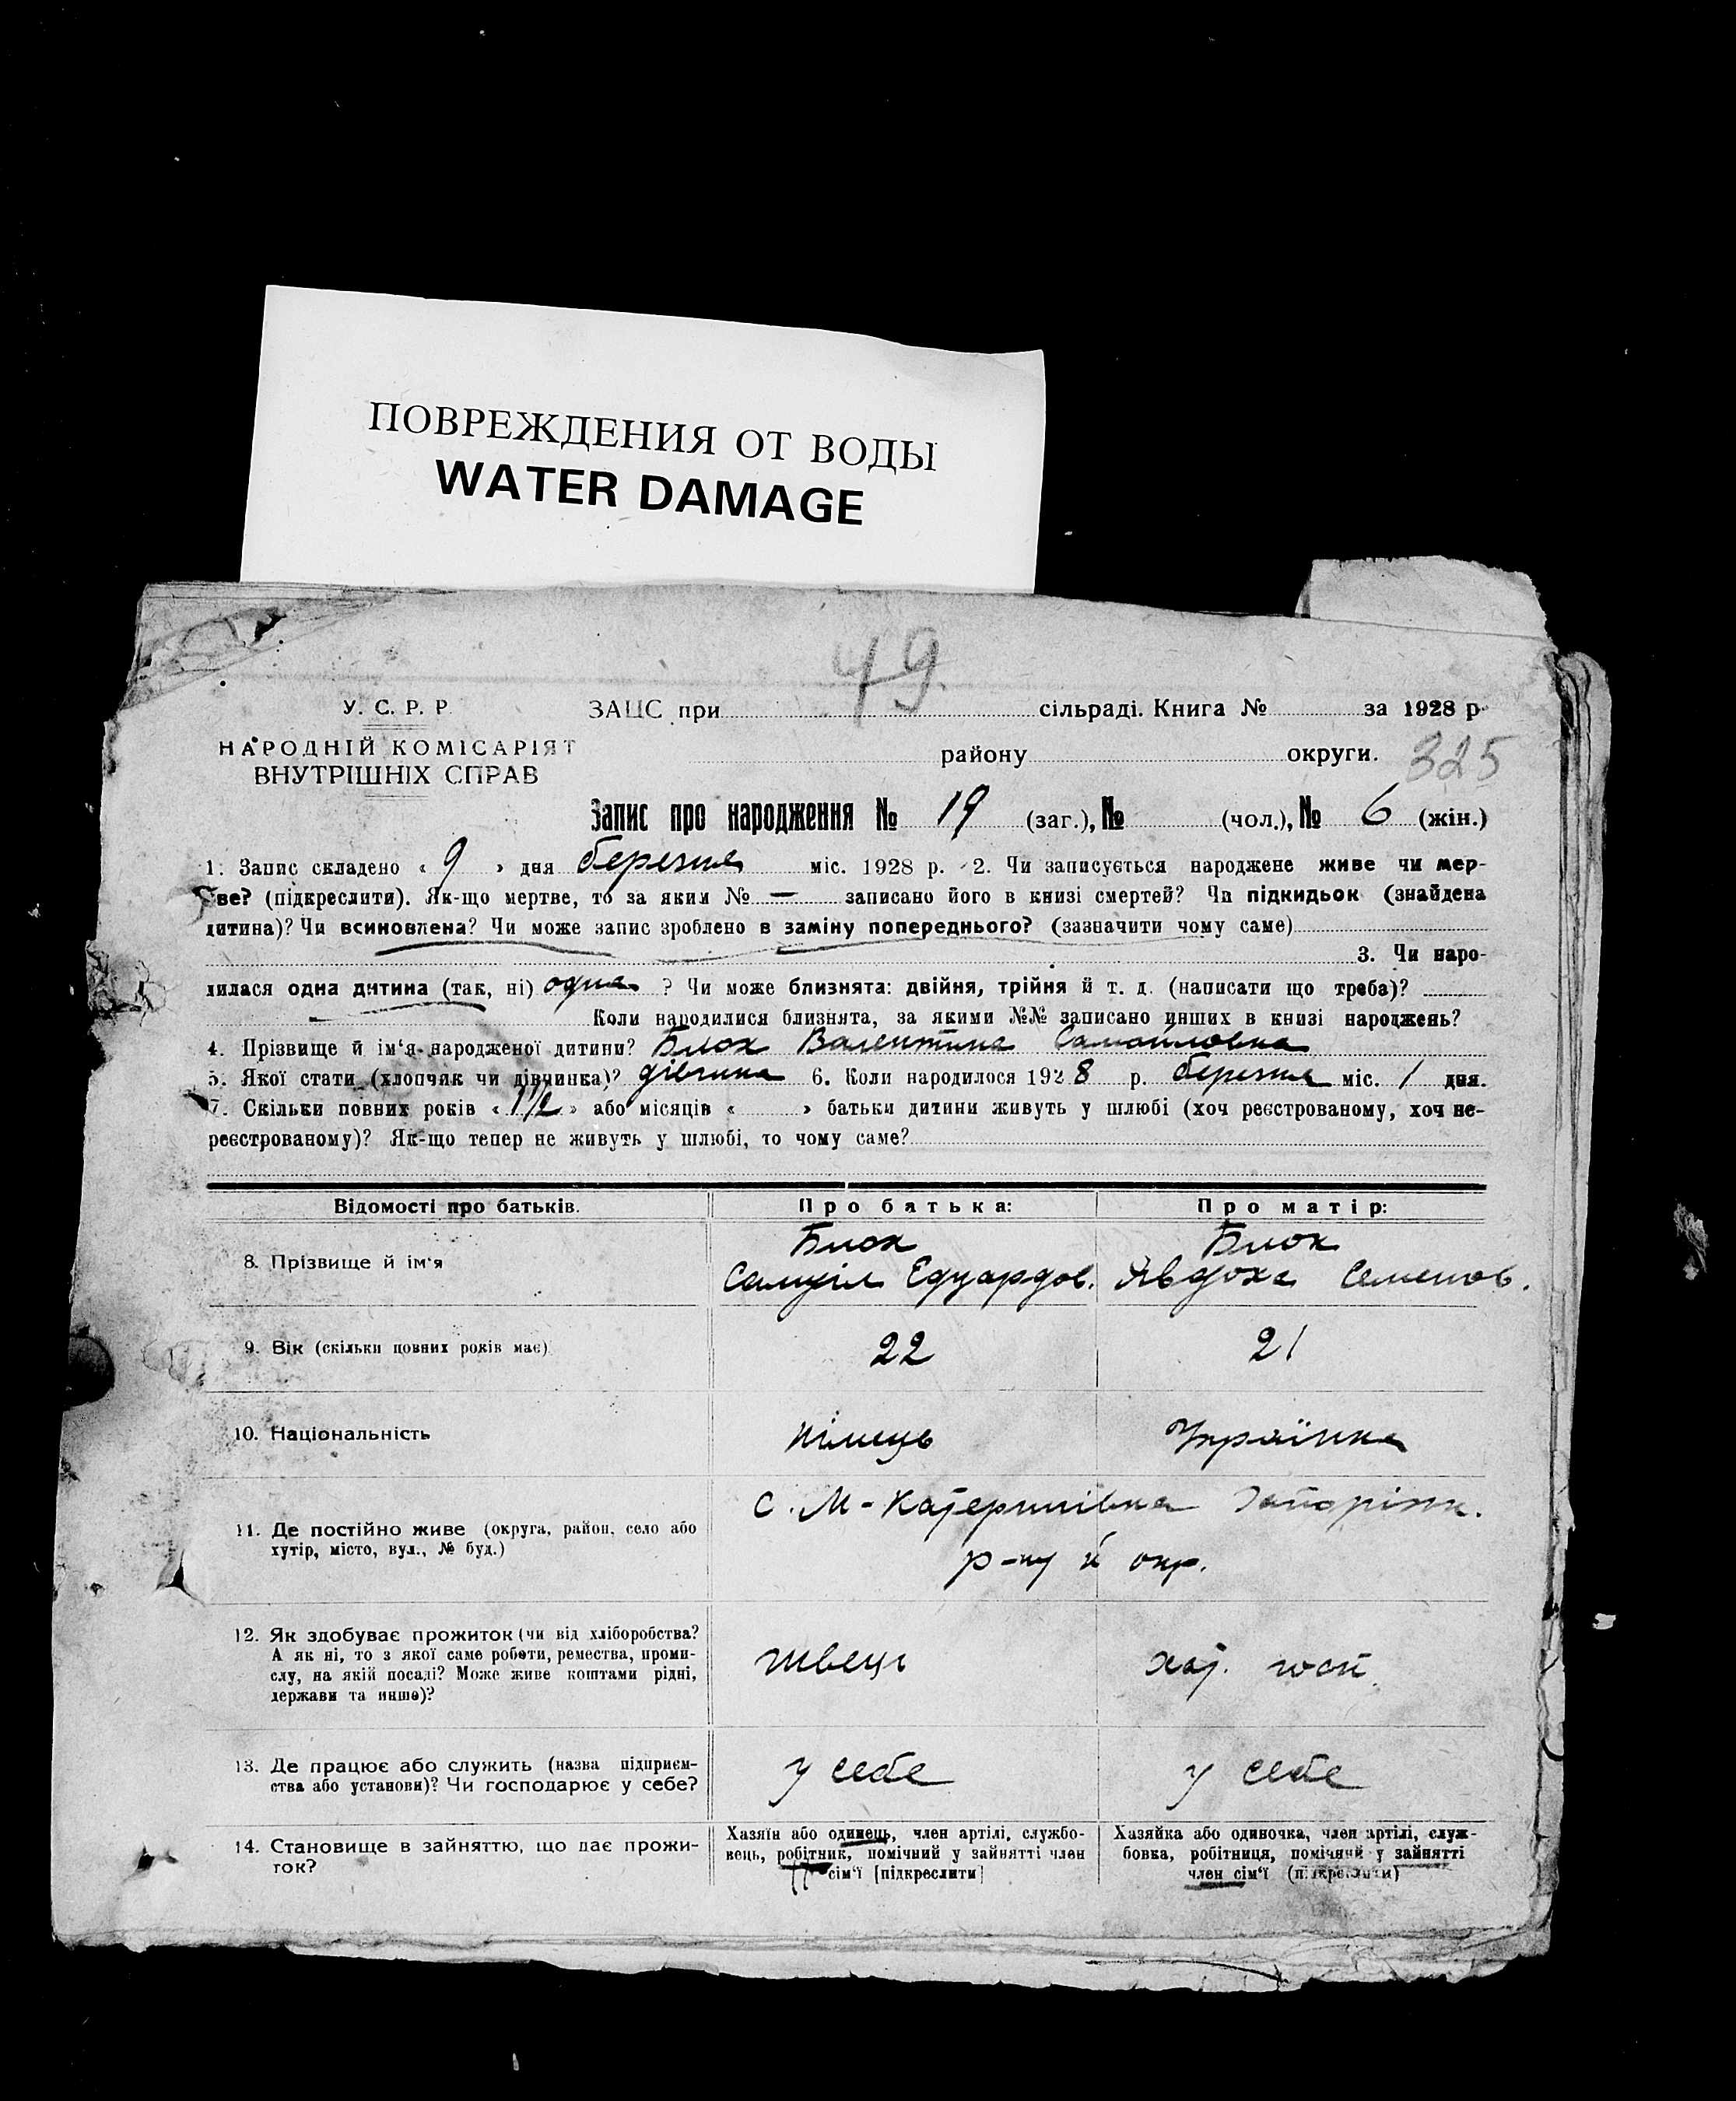 ПОВРЕЖДЕНИЯ ОТ ВОДЫ
WATER DAMAGE
49
У. С. Р. Р.
НАРОДНІЙ КОМІСАРІЯТ
ВНУТРІШНІХ СПРАВ
ЗАЦС при сільраді. Книга № за 1928 р.
району округи. 325
Запис про народження № 19 (заг.), № (чол.), № 6 (жін.)
1. Запис складено « 9 » дня березня міс. 1928 р. 2. Чи записується народжене живе чи мер-
тве? (підкреслити). Як-що мертве, то за яким № — записано його в книзі смертей? Чи підкидьок (знайдена
дитина)? Чи всиновлена? Чи може запис зроблено в заміну попереднього? (зазначити чому саме)
3. Чи наро-
дилася одна дитина (так, ні) одна ? Чи може близнята: двійня, трійня й т. д. (написати що треба)?
Коли народилися близнята, за якими №№ записано инших в книзі народжень?
4. Прізвище й ім‘я народженої дитини? Блох Валентина Самоиловна
5. Якої стати (хлопчик чи дівчинка)? дівчина 6. Коли народилося 1928 р. березня міс. 1 дня.
7. Скільки повних років « 1 1/2 » або місяців « » батьки дитини живуть у шлюбі (хоч реєстрованому, хоч не-
реєстрованому)? Як-що тепер не живуть у шлюбі, то чому саме?
Відомості про батьків. Про батька: Про матір:
8. Прізвище й ім‘я
Блох Блох
Самуіл Едуардов. Явдоха Семенов.
9. Вік (скільки повних років має) 22 21
10. Національність німець Українка
11. Де постійно живе (округа, район, село або
хутір, місто, вул., № буд.)
с. М-Катеринівка Запоріжж.
р-ну й окр.
12. Як здобуває прожиток (чи від хліборобства?
А як ні, то з якої саме роботи, ремества, проми-
слу, на якій посаді? Може живе коштами рідні,
держави та инше)?
швець хат. госп.
13. Де працює або служить (назва підприєм-
ства або установи)? Чи господарює у себе?
у себе у себе
14. Становище в зайняттю, що дає прожи-
ток?
Хазяїн або одинець, член артілі, службо-
вець, робітник, помічний у зайнятті член
сім‘ї [підкреслити]
Хазяйка або одиночка, член артілі, служ-
бовка, робітниця, помічний у зайнятті
член сім‘ї (підкреслити)